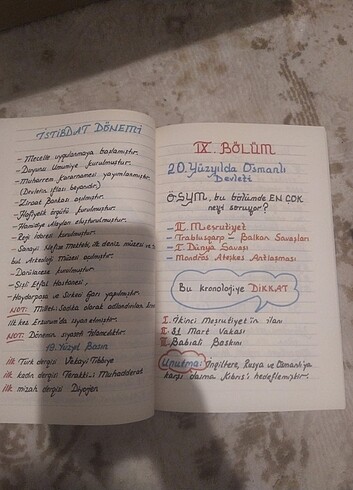 İSTİBDAT DÖNEMİ
- Mecelle uygulanmaya başlamıştır.
- Duyunu Umumiye kurulmuştur.
- Muharrem Kararnamesi yayımlanmıştır.
(Devletin iflası beyanıdır.)
- Ziraat Bankası açılmıştır.
- Hafiyelik örgütü kurulmuştur.
- Hamidiye Alayları oluşturulmuştur.
- Reji idaresi kurulmuştur.
- Sanayii Nefise Mektebi, ilk deniz müzesi ve
bul Arkeoloji Müzesi açılmıştır.
- Darülaceze kurulmuştur.
- Şişli Etfal Hastanesi,
- Haydarpaşa ve Sirkeci Garı yapılmıştır.
NOT: Millet-i Sadıka olarak adlandırılan
ilk kez Erzurum'da isyan etmiştir.
NOT: Dönemin siyaseti İslamcılıktır.
19. Yüzyıl Basın
ilk Türk dergisi Vekayi Tıbbiye
ilk kadın dergisi Terakki-i Muhadderat
ilk mizah dergisi Diyojen
IX. BÖLÜM
20. Yüzyılda Osmanlı
Devleti
ÖSYM, bu bölümde EN ÇOK
neyi soruyor?
- II. Meşrutiyet
- Trablusgarp - Balkan Savaşları
- I. Dünya Savaşı
- Mondros Ateşkes Antlaşması
Bu kronolojiye DİKKAT
I. İkinci Meşrutiyet'in ilanı
II. 31 Mart Vakası
III. Babıali Baskını
Unutma: İngiltere, Rusya ve Osmanlı'ya
karşı daima Kıbrıs'ı hedeflemiştir.